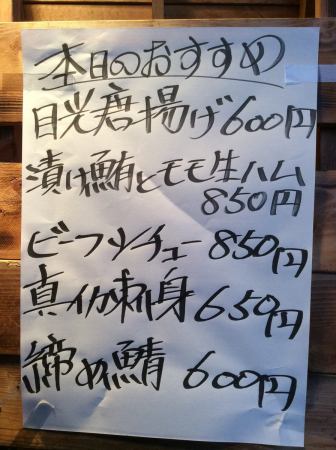 本日のおすすめ
目光唐揚げ600円
漬け鮪とモモ生ハム
850円
ビーフシチュー850円
真イカ刺身650円
締め鯖 600円